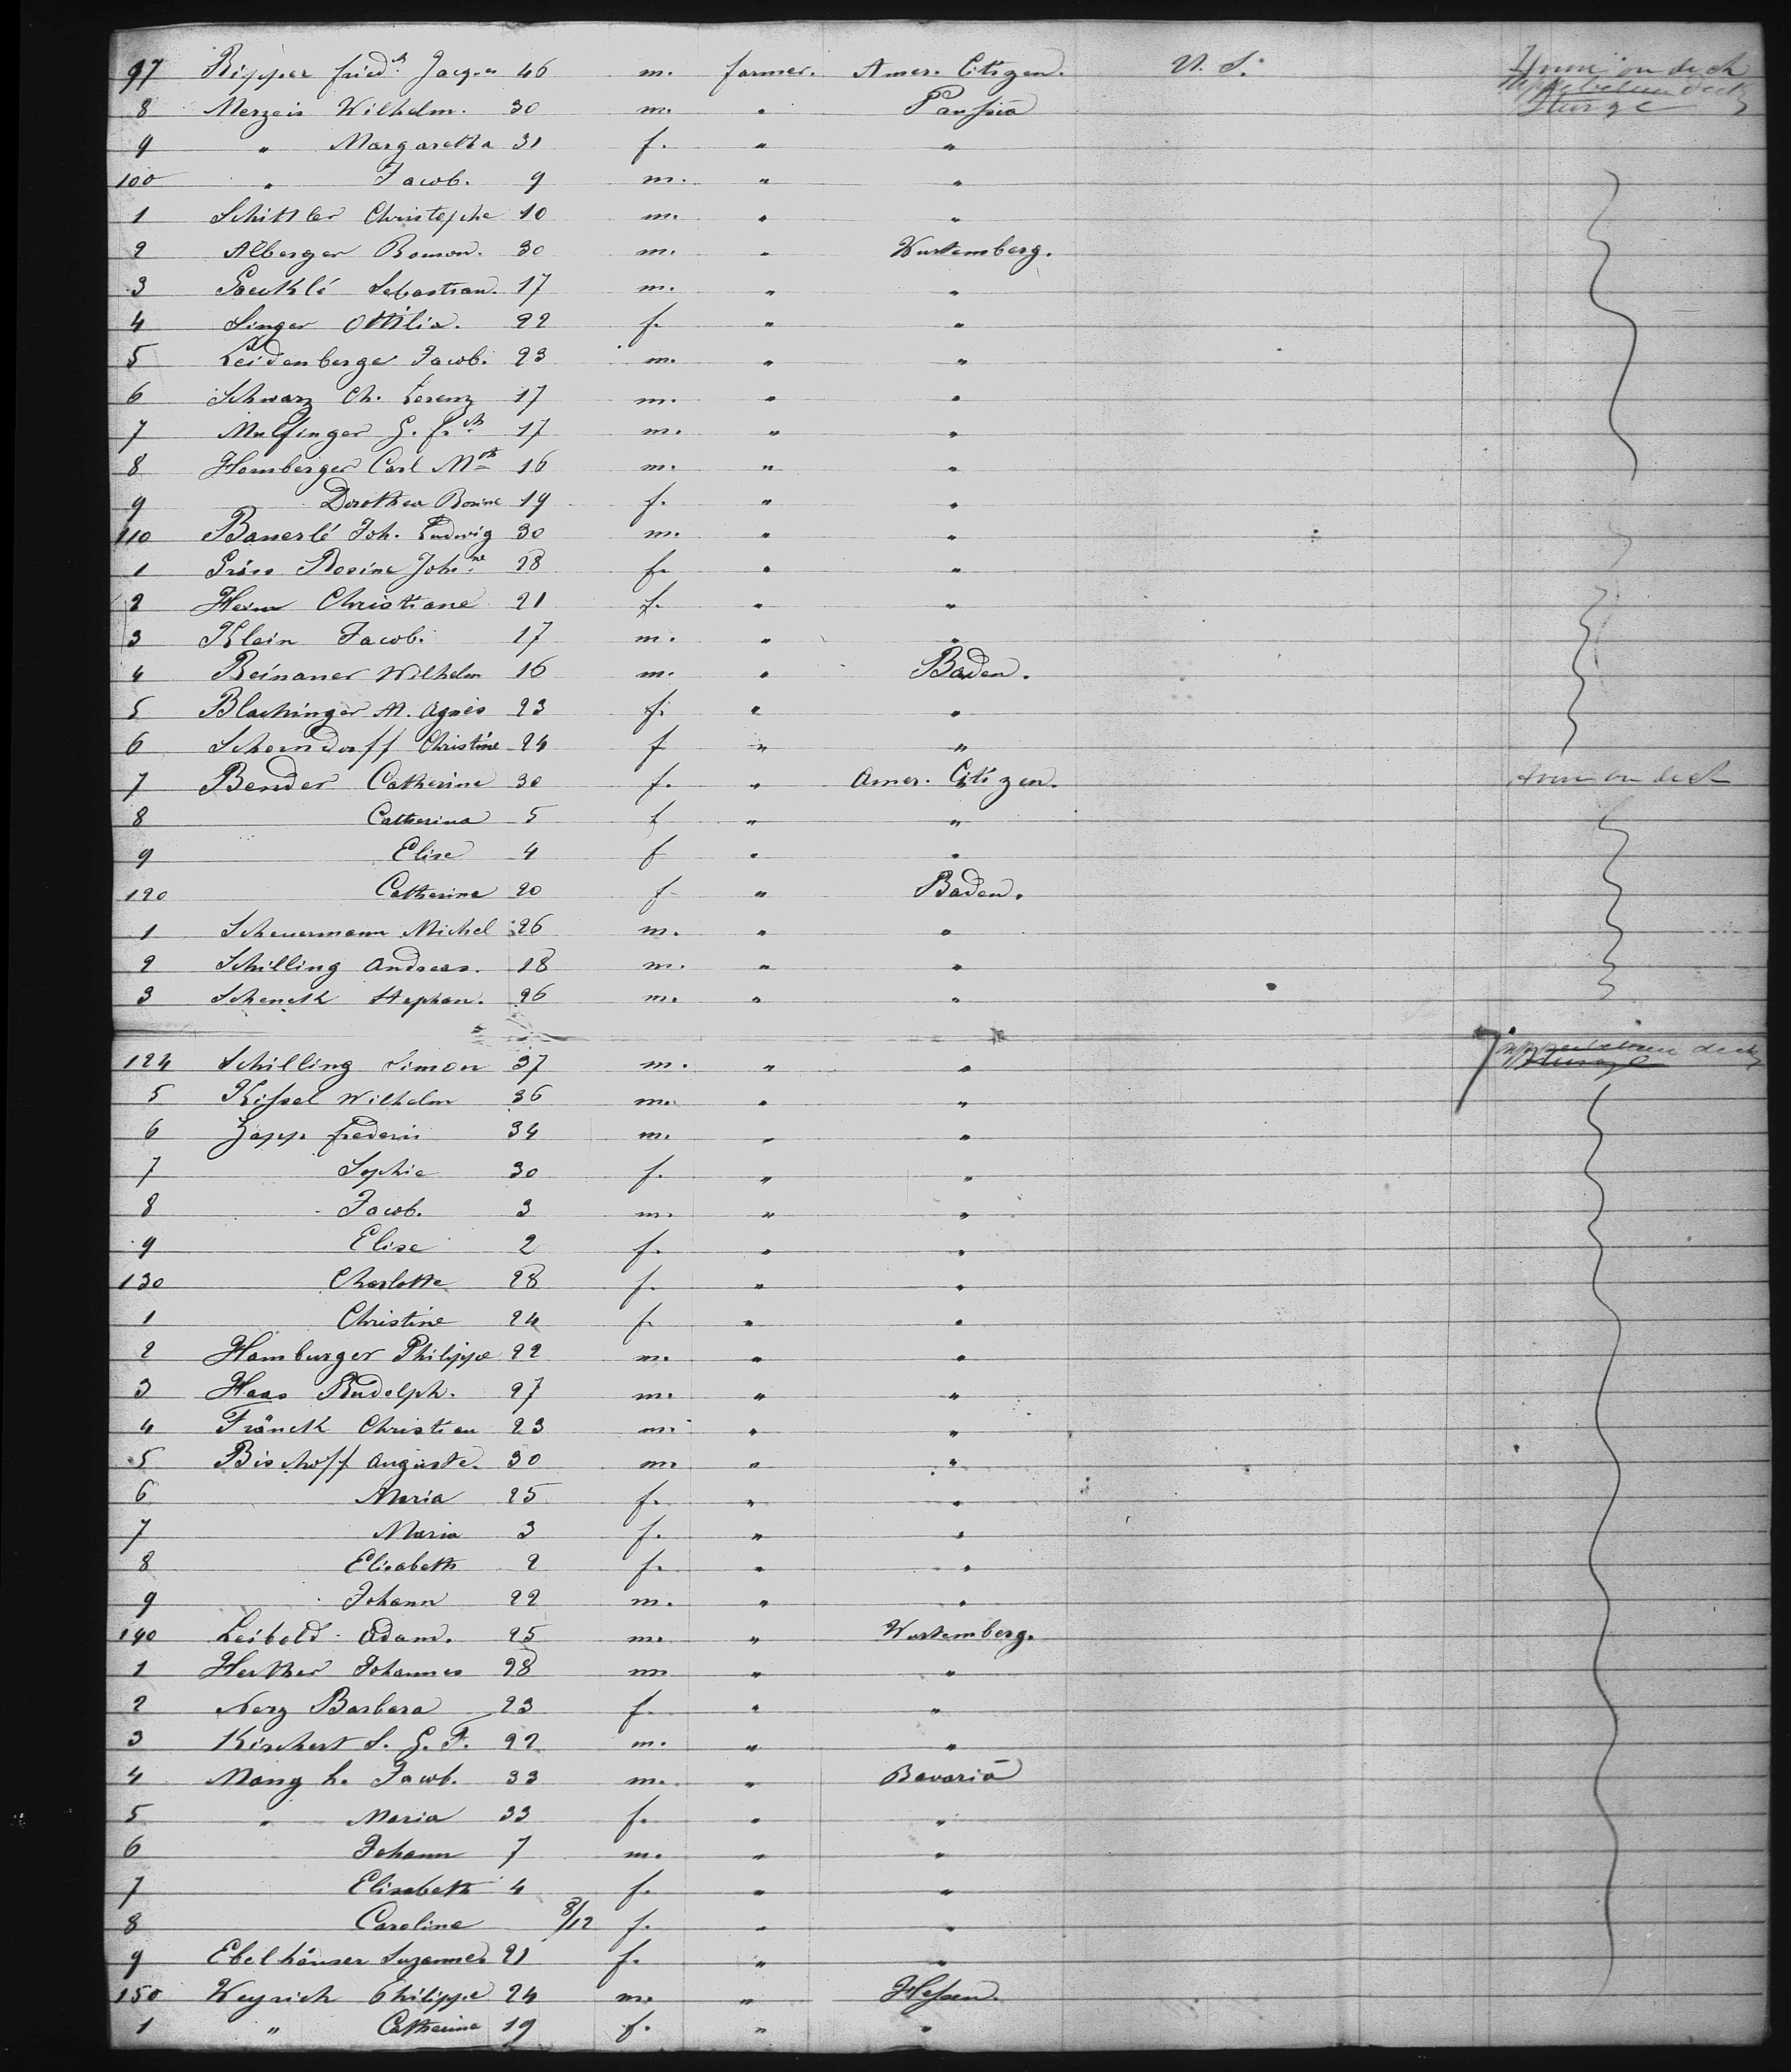 97 Ripper fried.k Jacques 46 m. farmer. Amer. Citizen. U. S. on deck
8 Merzeis Wilhelm. 30 m. " Prussia
9 " Margaretha 31 f. " "
100 " Jacob. 9 m. " "
1 Schittler Christophe 10 m. " "
2 Alberger Roman. 30 m. " Wurtemberg.
3 Sebastian. 17 m. " "
4 Singer Ottilia. 22 f. " "
5 Leidenberger Jacob. 23 m. " "
6 Schwarz Ch. Lorenz 17 m. " "
7 Mulfinger G. fr.ch 17 m. " "
8 Hamberger Carl Mth 16 m. " "
9 Dorothea Rosine 19 f. " "
110 Bauerlé Joh. Ludwig 30 m. " "
1 Gröss Rosine Joh.ne 28 f. " "
2 Heim Christiane 21 f. " "
3 Klein Jacob. 17 m. " "
4 Reinauer Wilhelm 16 m. " Baden.
5 Blachinger M. Agnès 23 f. " "
6 Schorndorff Christine 24 f " "
7 Bender Catherine 30 f. " Amer. Citizen. on deck
8 Catherina 5 f " "
9 Elise 4 f " "
120 Catherine 20 f " Baden.
1 Scheuermann Michel 26 m. " "
2 Schilling Andreas. 18 m. " "
3 Schenck Stephan. 26 m. " "
124 Schilling Simon 37 m. " " deck
5 Kissel Wilhelm 36 m. " "
6 Zapp frederic 34 m. " "
7 Sophie 30 f. " "
8 Jacob. 3 m. " "
9 Elise 2 f. " "
130 Charlotte 28 f. " "
1 Christine 24 f. " "
2 Hamburger Philippe 22 m. " "
3 Haas Rudolph. 27 m. " "
4 Fränck Christian 23 m. " "
5 Bischoff Auguste. 30 m. " "
6 Maria 25 f. " "
7 Maria 3 f. " "
8 Elisabeth 2 f. " "
9 Johann 22 m. " "
140 Leibold Adam. 25 m. " Wurtemberg.
1 Herther Johannes 28 m. " "
2 Nerz Barbara 23 f. " "
3 Kirchert S. G. F. 22 m. " "
4 Mang L. Jacob. 33 m. " Bavaria
5 " Maria 33 f. " "
6 Johann 7 m. " "
7 Elisabeth 4 f. " "
8 Caroline 8/12 f. " "
9 Ebelhäuser Suzanne. 21 f. " "
150 Weyrich Philippe 24 m. " Hessen.
1 " Catherine 19 f. " "